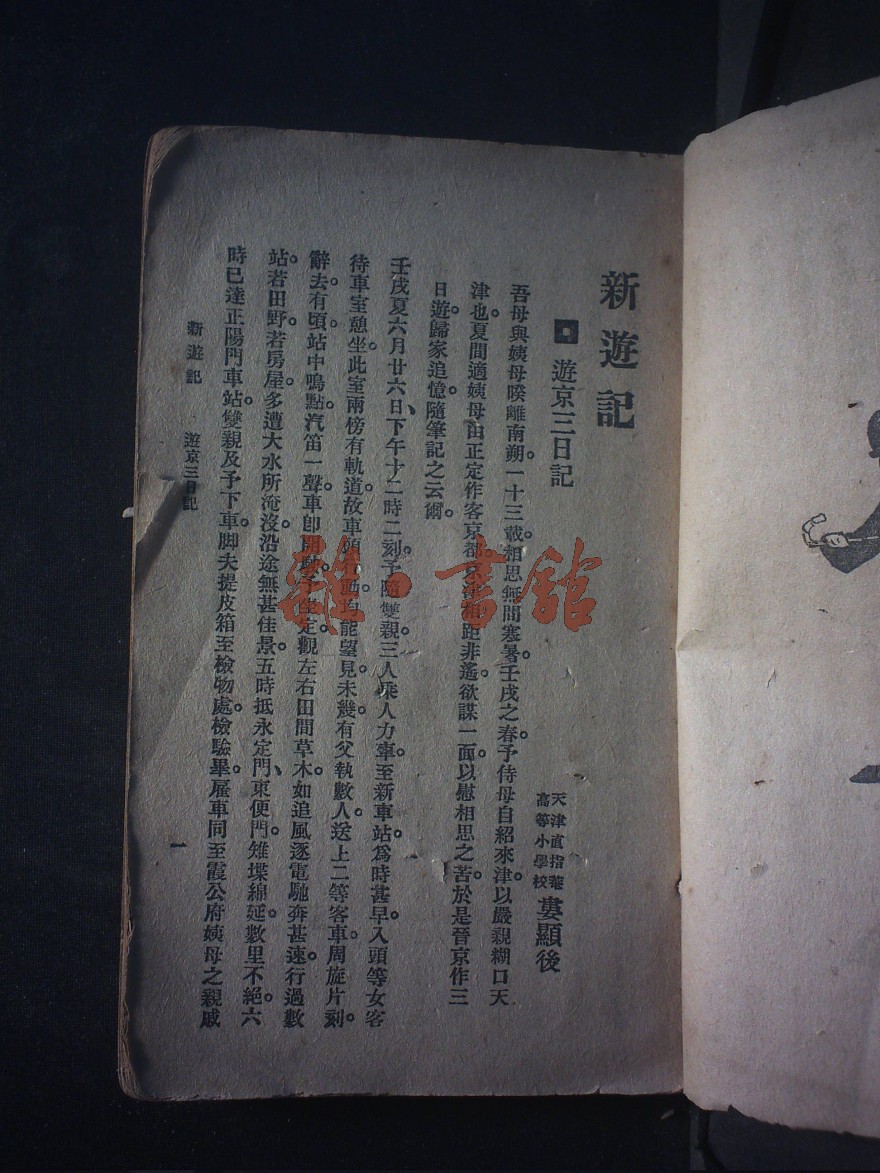 新遊記
遊京三日記
天津直指菴
高等小學校
婁顯後
吾母與姨母暌離南朔。一十三載。相思無間寒暑。壬戌之春。予侍母自紹來津。以嚴親糊口天
津也。夏間適姨母由正定作客京都。京津相距非遙。欲謀一面。以慰相思之苦。於是晉京作三
日遊。歸家追憶。隨筆記之云爾。
壬戌夏六月廿六日、下午十二時二刻。予隨雙親三人乘人力車。至新車站。爲時甚早。入頭等女客
待車室憩坐。此室兩傍有軌道。故車頭 動均能望見。未幾有父執數人。送上二等客車。周旋片刻
辭去。有頃。站中鳴點。汽笛一聲。車卽開 坐定。觀左右田間草木。如追風逐電。馳奔甚速。行過數
站。若田野。若房屋。多遭大水所淹沒。沿途無甚佳景。五時抵永定門、東便門。雉堞綿延。數里不絕。六
時已達正陽門車站。雙親及予下車。脚夫提皮箱至檢物處。檢驗畢。雇車同至霞公府姨母之親戚
新遊記 遊京三日記
一
雜·書館